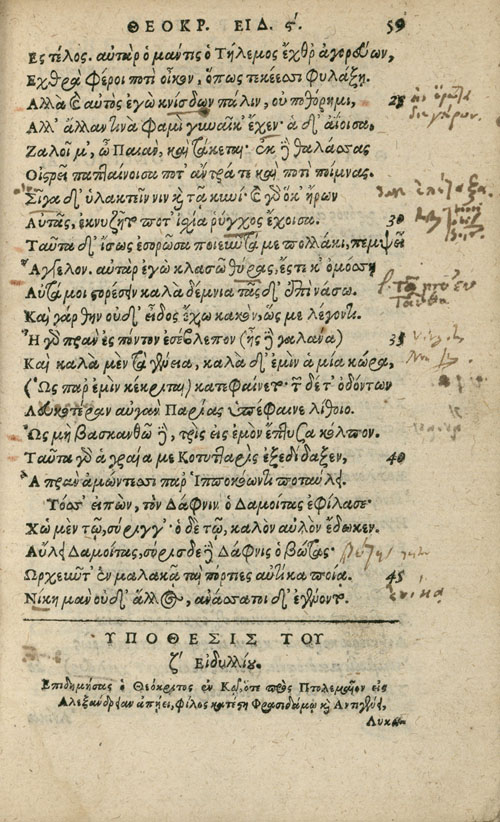 ΘΕΟΚΡ. ΕΙΔ. ϛ. 59
Ες τέλος. αὐτὰρ ὁ μαντις ὁ Τήλεμος ἔχθρ' ἀγορεύων,
Εχθρὰ φέροι ποτὶ οἶκον, ὅπως τεκέεσσι φυλάξῃ.
Αλλὰ καὶ αὐτὸς ἐγὼ κνίσδων πάλιν, οὐ ποθόρημι, 25
Αλλ' ἄλλαν τινὰ φαμὶ γυναῖκ' ἔχεν· ἁ δ' ἀΐοισα,
Ζαλοῖ μ', ὦ Παιὰν, καὶ τάκεται· ἐκ δὲ θαλάσσας
Οἰστρεῖ παπταίνοισα ποτ' ἄντρά τε καὶ ποτὶ ποίμνας.
Σῖγα δ' ὑλακτεῖν νιν καὶ τᾷ κυνί. καὶ γὰρ ὅκ' ἤρων
Αὐτᾶς, ἐκνυζῆτο ποτ' ἰσχία ῥύγχος ἔχοισα. 30
Ταῦτα δ' ἴσως ἐσορῶσα ποιεῦντά με πολλάκι, πεμψεῖ
Ἄγγελον. αὐτὰρ ἐγὼ κλασῶ θύρας, ἔστε κ' ὀμόσσῃ
Αὐτά μοι στορέσειν καλὰ δέμνια τᾶσδ' ἐπὶ νάσω.
Καὶ γάρ θην οὐδ' εἶδος ἔχω κακὸν, ὥς με λέγοντι.
Ἦ γὰρ πρὰν ἐς πόντον ἐσέβλεπον (ἦς δὲ γαλάνα) 35
Καὶ καλὰ μὲν τὰ γένεια, καλὰ δ' ἐμὶν ἁ μία κώρα,
(Ὡς παρ' ἐμὶν κέκριται) κατεφαίνετο· τῶν δέ τ' ὀδόντων
Λευκοτέραν αὐγὰν Παρίας ὑπέφαινε λίθοιο.
Ὡς μὴ βασκανθῶ δὲ, τρὶς εἰς ἐμὸν ἔπτυσα κόλπον.
Ταῦτα γὰρ ἁ γραία με Κοτυτταρὶς ἐξεδίδαξεν, 40
Ἃ πρὰν ἀμώντεσσι παρ' Ἱπποκόωντι ποταύλει.
Τόσσ' εἰπὼν, τὸν Δάφνιν ὁ Δαμοίτας ἐφίλασε·
Χὠ μὲν τῷ, σύριγγ'· ὁ δὲ τῷ, καλὸν αὐλὸν ἔδωκεν.
Αὔλει Δαμοίτας, σύρισδε δὲ Δάφνις ὁ βώτας·
Ὠρχεῦντ' ἐν μαλακᾷ ταὶ πόρτιες αὐτίκα ποίᾳ. 45
Νίκη μὰν οὐδ' ἄλλος, ἀνάσσατοι δ' ἐγένοντο.
ΥΠΟΘΕΣΙΣ ΤΟΥ
ζ' Εἰδυλλίου.
Επιδημήσας ὁ Θεόκριτος ἐν Κῷ, ὅτε πρὸς Πτολεμαῖον εἰς
Αλεξάνδρειαν ἀπῄει, φίλος κατέστη Φρασιδάμῳ καὶ Αντιγένει,
Λυκω-